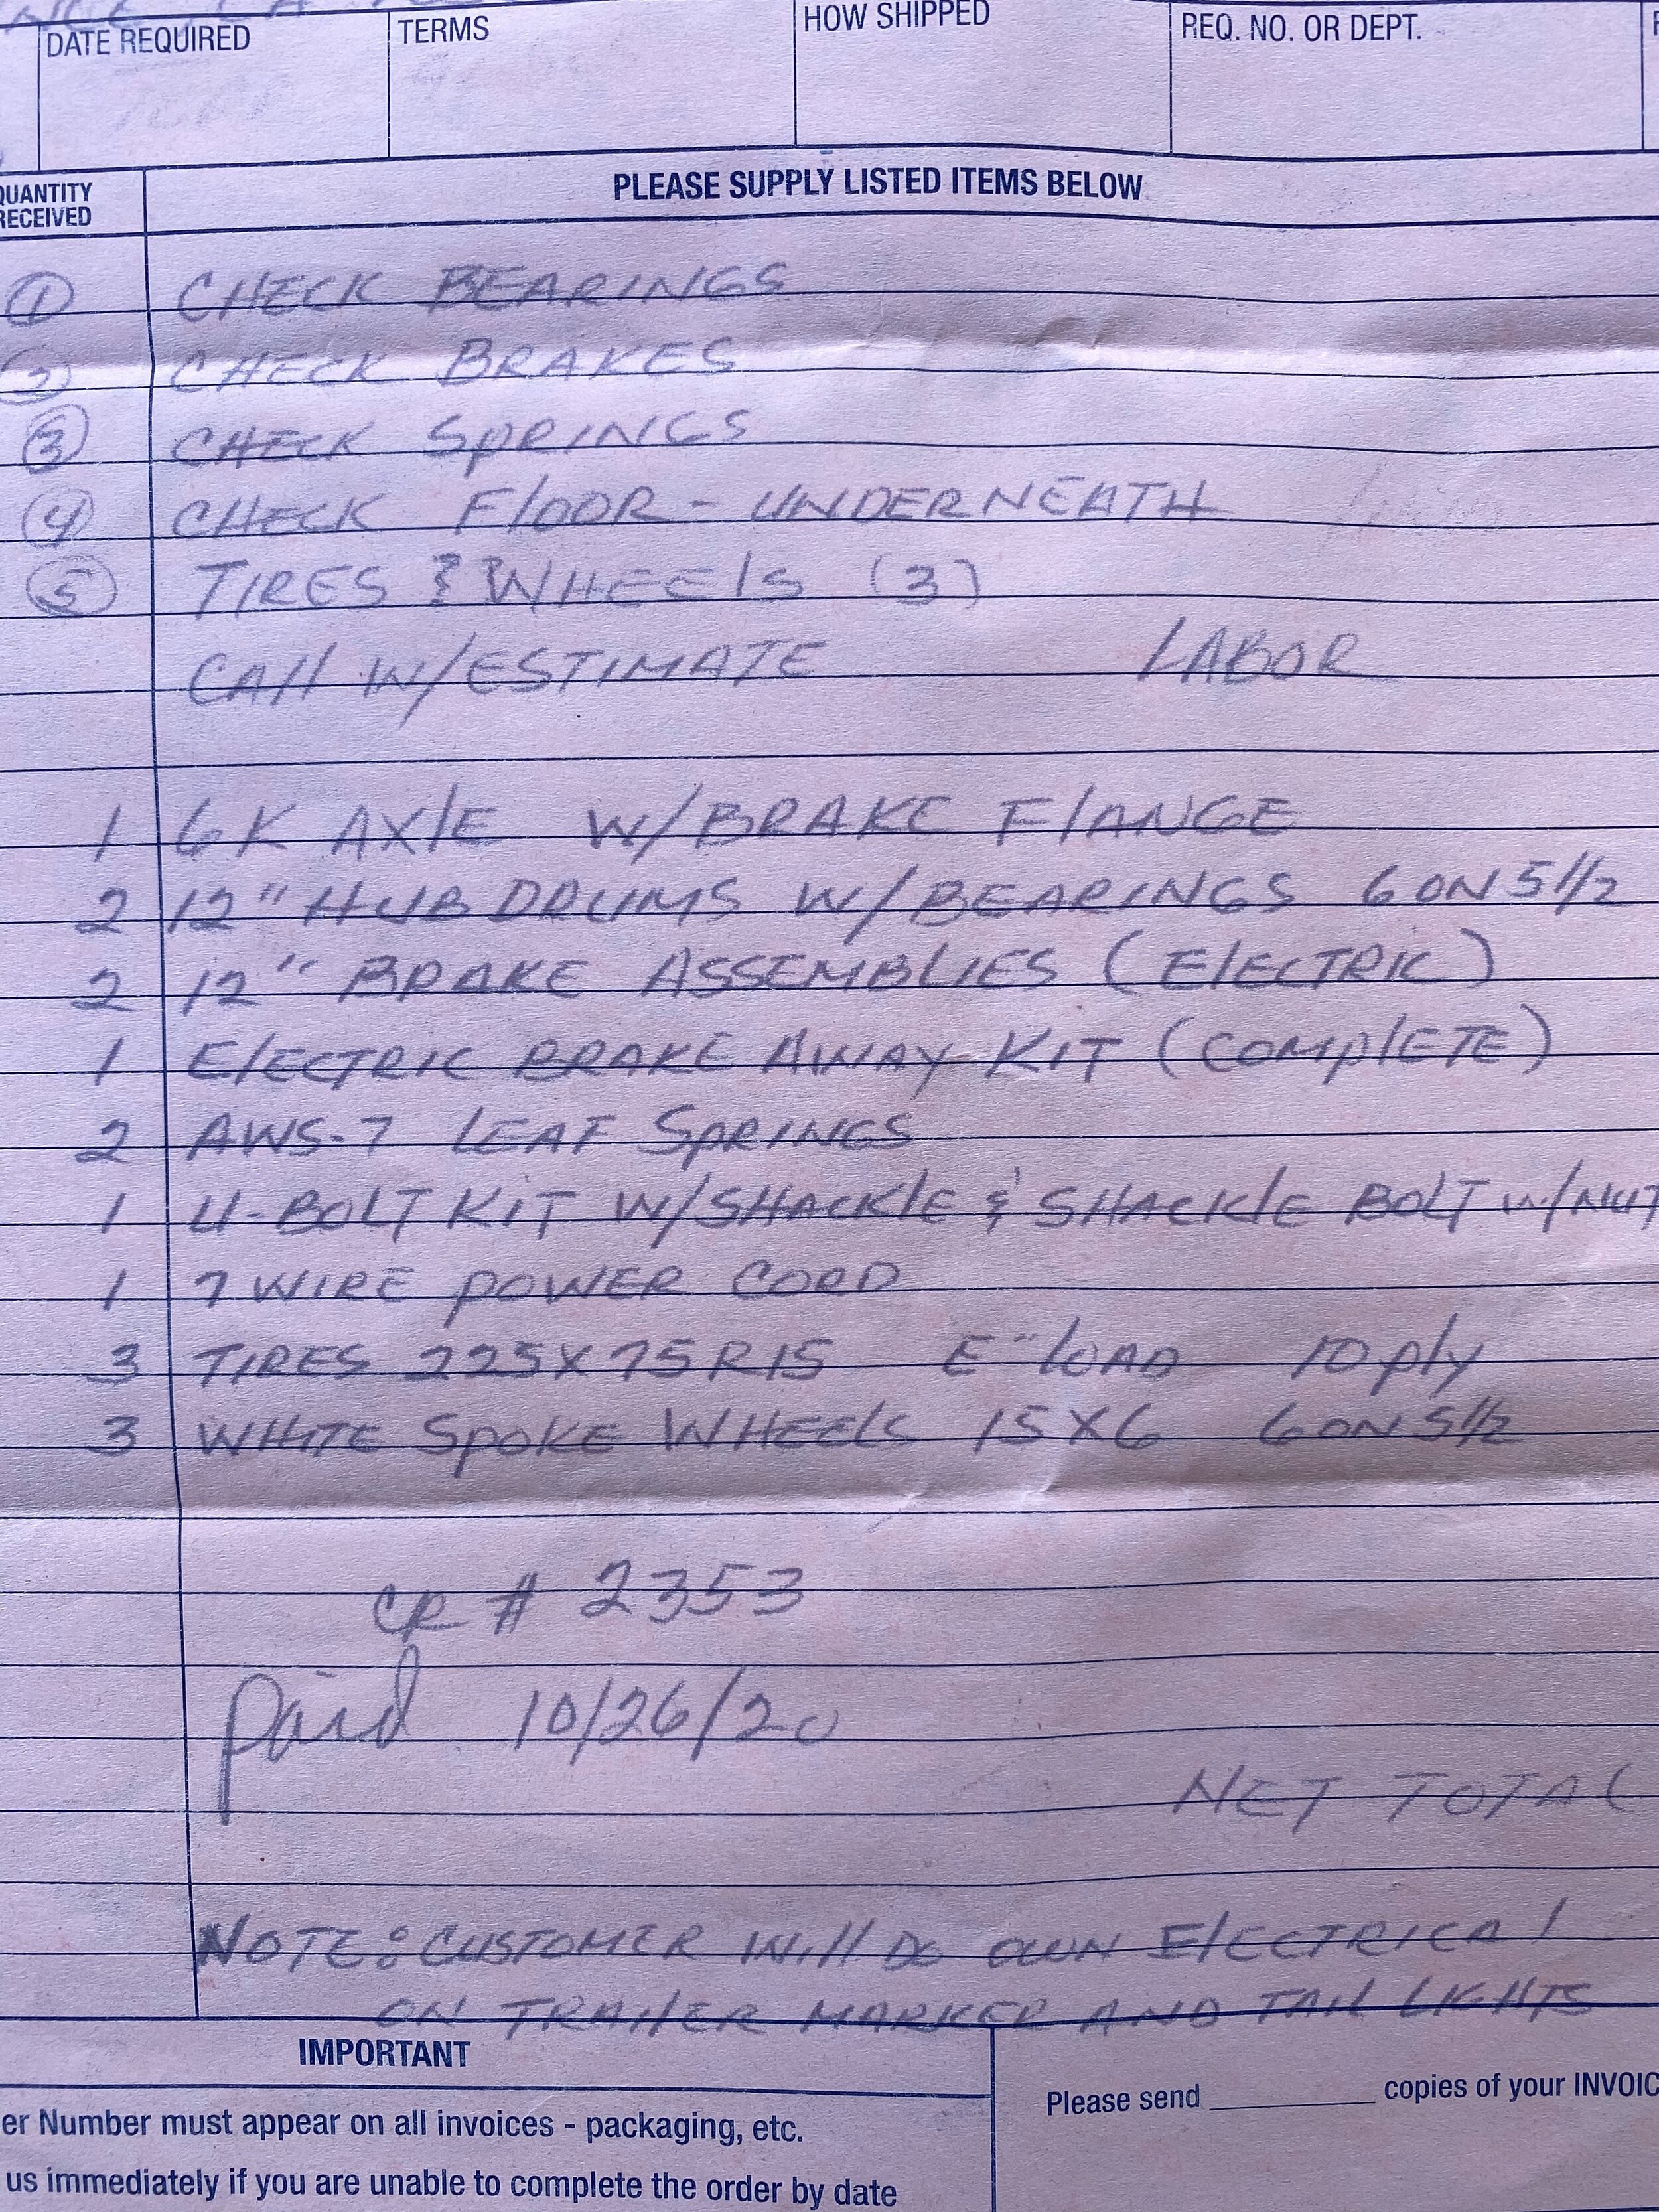 DATE REQUIRED TERMS HOW SHIPPED REQ. NO. OR DEPT.
QUANTITY RECEIVED PLEASE SUPPLY LISTED ITEMS BELOW
1 CHECK BEARINGS
2 CHECK BRAKES
3 CHECK SPRINGS
4 CHECK FlOOR - UNDERNEATH
5 TIRES & WHEElS (3)
CAll W/ESTIMATE LABOR
1 6K AXlE W/BRAKE FlANGE
2 12" HUB DRUMS W/BEARINGS 6 ON 5 1/2
2 12" BRAKE ASSEMBLIES (ElECTRIC)
1 ElECTRIC BRAKE AWAY KIT (COMPlETE)
2 AWS-7 LEAF SPRINGS
1 U-BOLT KIT W/SHACKlE & SHACKlE BOLT W/NUT
1 7 WIRE POWER CORD
3 TIRES 225X75R15 E" LOAD 10 ply
3 WHITE SPOKE WHEElS 15X6 6 ON 5 1/2
# 2353
Paid 10/26/20
NET TOTAL
NOTE: CUSTOMER Will DO OWN ElECTRICAl
ON TRAIlER MARKER AND TAIl LIGHTS
IMPORTANT
er Number must appear on all invoices - packaging, etc.
us immediately if you are unable to complete the order by date
Please send ________ copies of your INVOIC